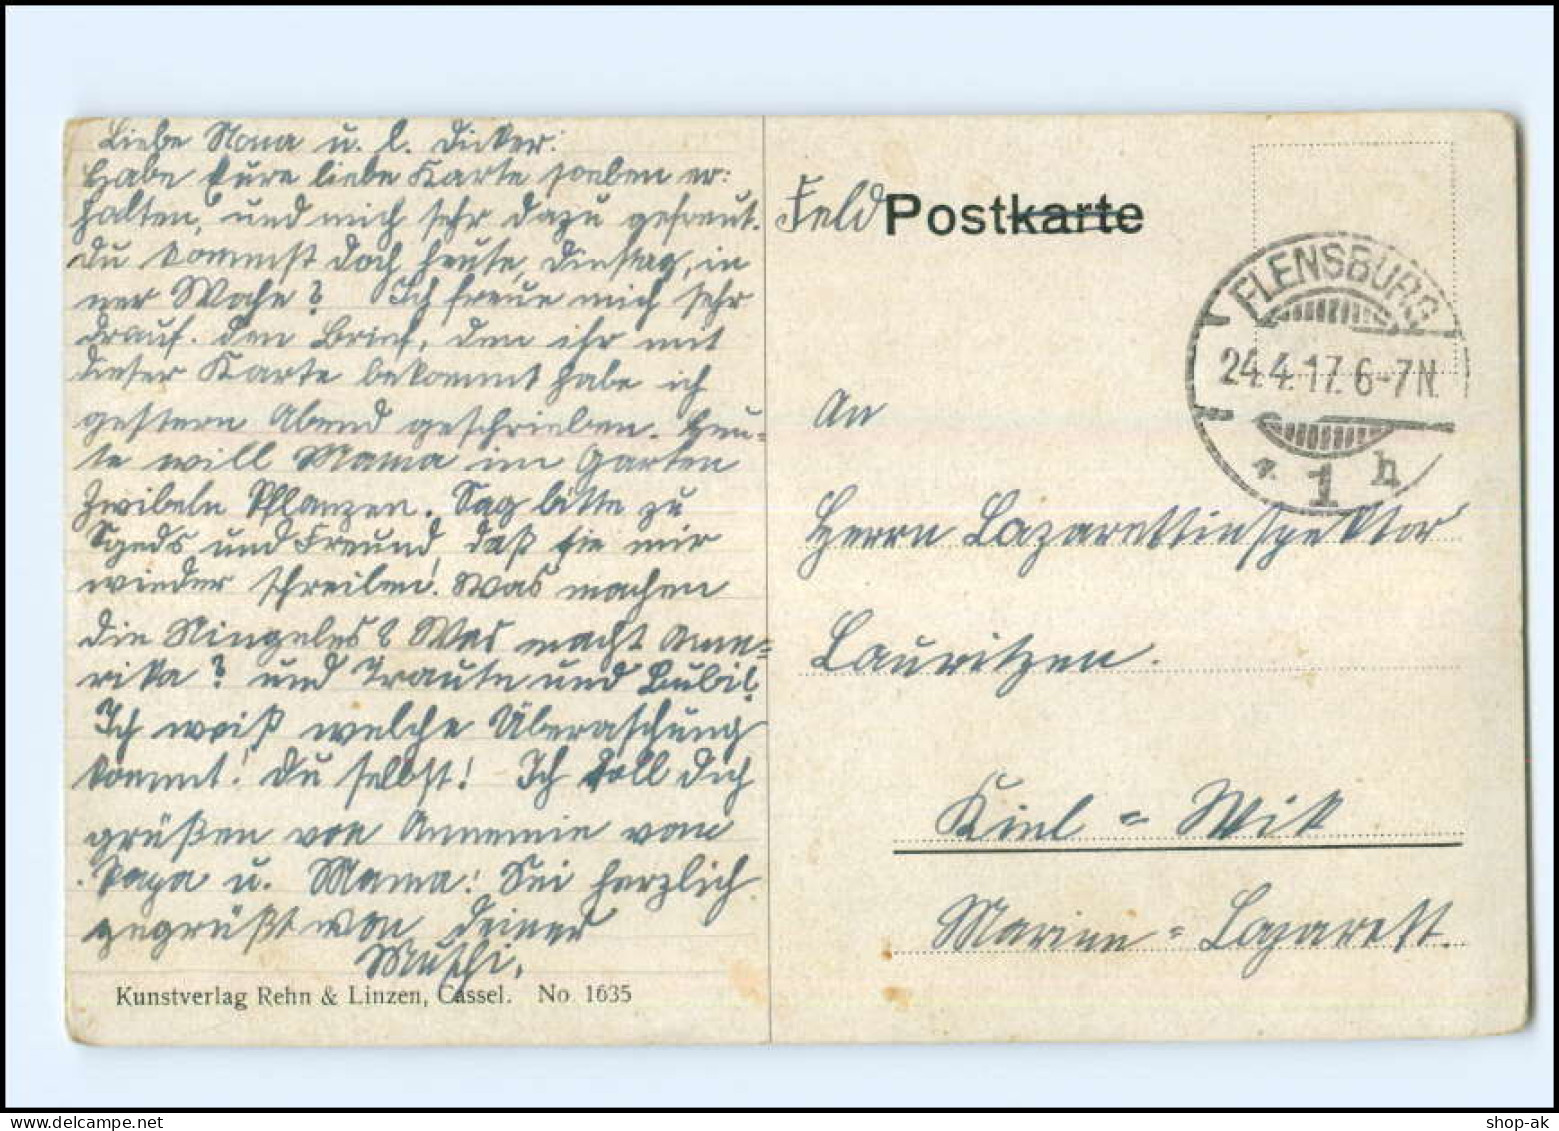 Liebe Mona u. l. Dicker:
Habe Eure liebe Karte soeben er:
halten, und mich sehr dazu gefreut.
Du kommst doch heute, Dinstag, in
ner Woche? Ich freue mich sehr
drauf. Den Brief, den ihr mit
dieser Karte bekommt habe ich
gestern Abend geschrieben. Heu-
te will Mama im Garten
Zwibeln Pflanzen. Sag bitte zu
und Freund, daß sie mir
wieder schreiben! Was machen
die Ningeles? Was macht Anne-
rika? und Traute und Bubi?
Ich weiß welche Überaschung
kommt! Du selbst! Ich soll Dich
grüßen von Annemie vom
Papa u. Mama! Sei herzlich
gegrüßt von Deiner
Muschi.
Kunstverlag Rehn & Linzen, Cassel. No 1635
Feld Postkarte
FLENSBURG
24.4.17. 6-7N.
* 1 h
An
Herrn Lazarettinspektor
Lauritzen.
Kiel = Wik
Marine = Lazarett.
shop-ak